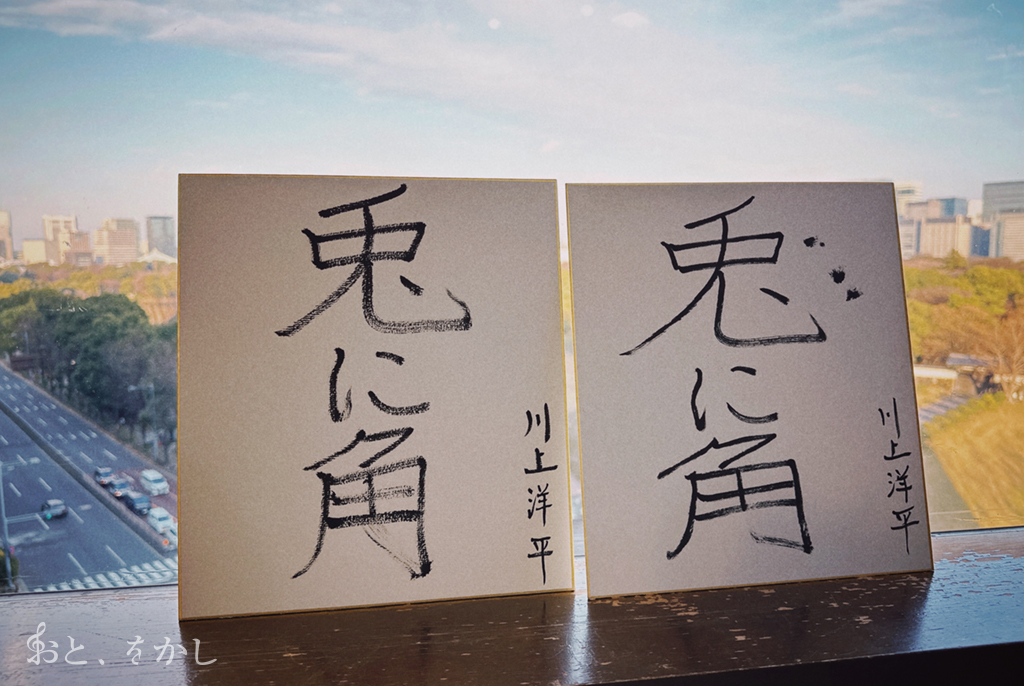 兎に角
川上洋平
兎に角
川上洋平
おと、をかし